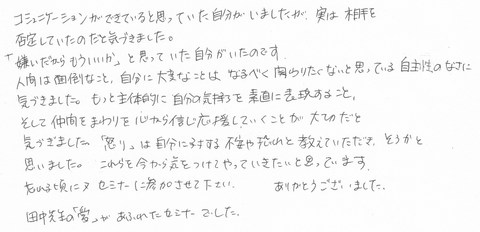 コミュニケーションができていると思っていた自分がいましたが、実は相手を
否定していたのだと気づきました。
「嫌いだからもういいか」と思っていた自分がいたのです
人間は面倒なこと、自分に大変なことは、なるべく関わりたくないと思っている自主性のなさに
気づきました。もっと主体的に自分の気持ちを素直に表現すること、
そして仲間をまわりを心から信じ応援していくことが大切だと
気づきました。「怒り」は自分に対する不安や恐れと教えていただき、そうかと
思いました。これらを今から気をつけてやっていきたいと思っています。
忘れる頃にまたセミナーに参加させて下さい。ありがとうございました。
田中先生の「愛」があふれたセミナーでした。